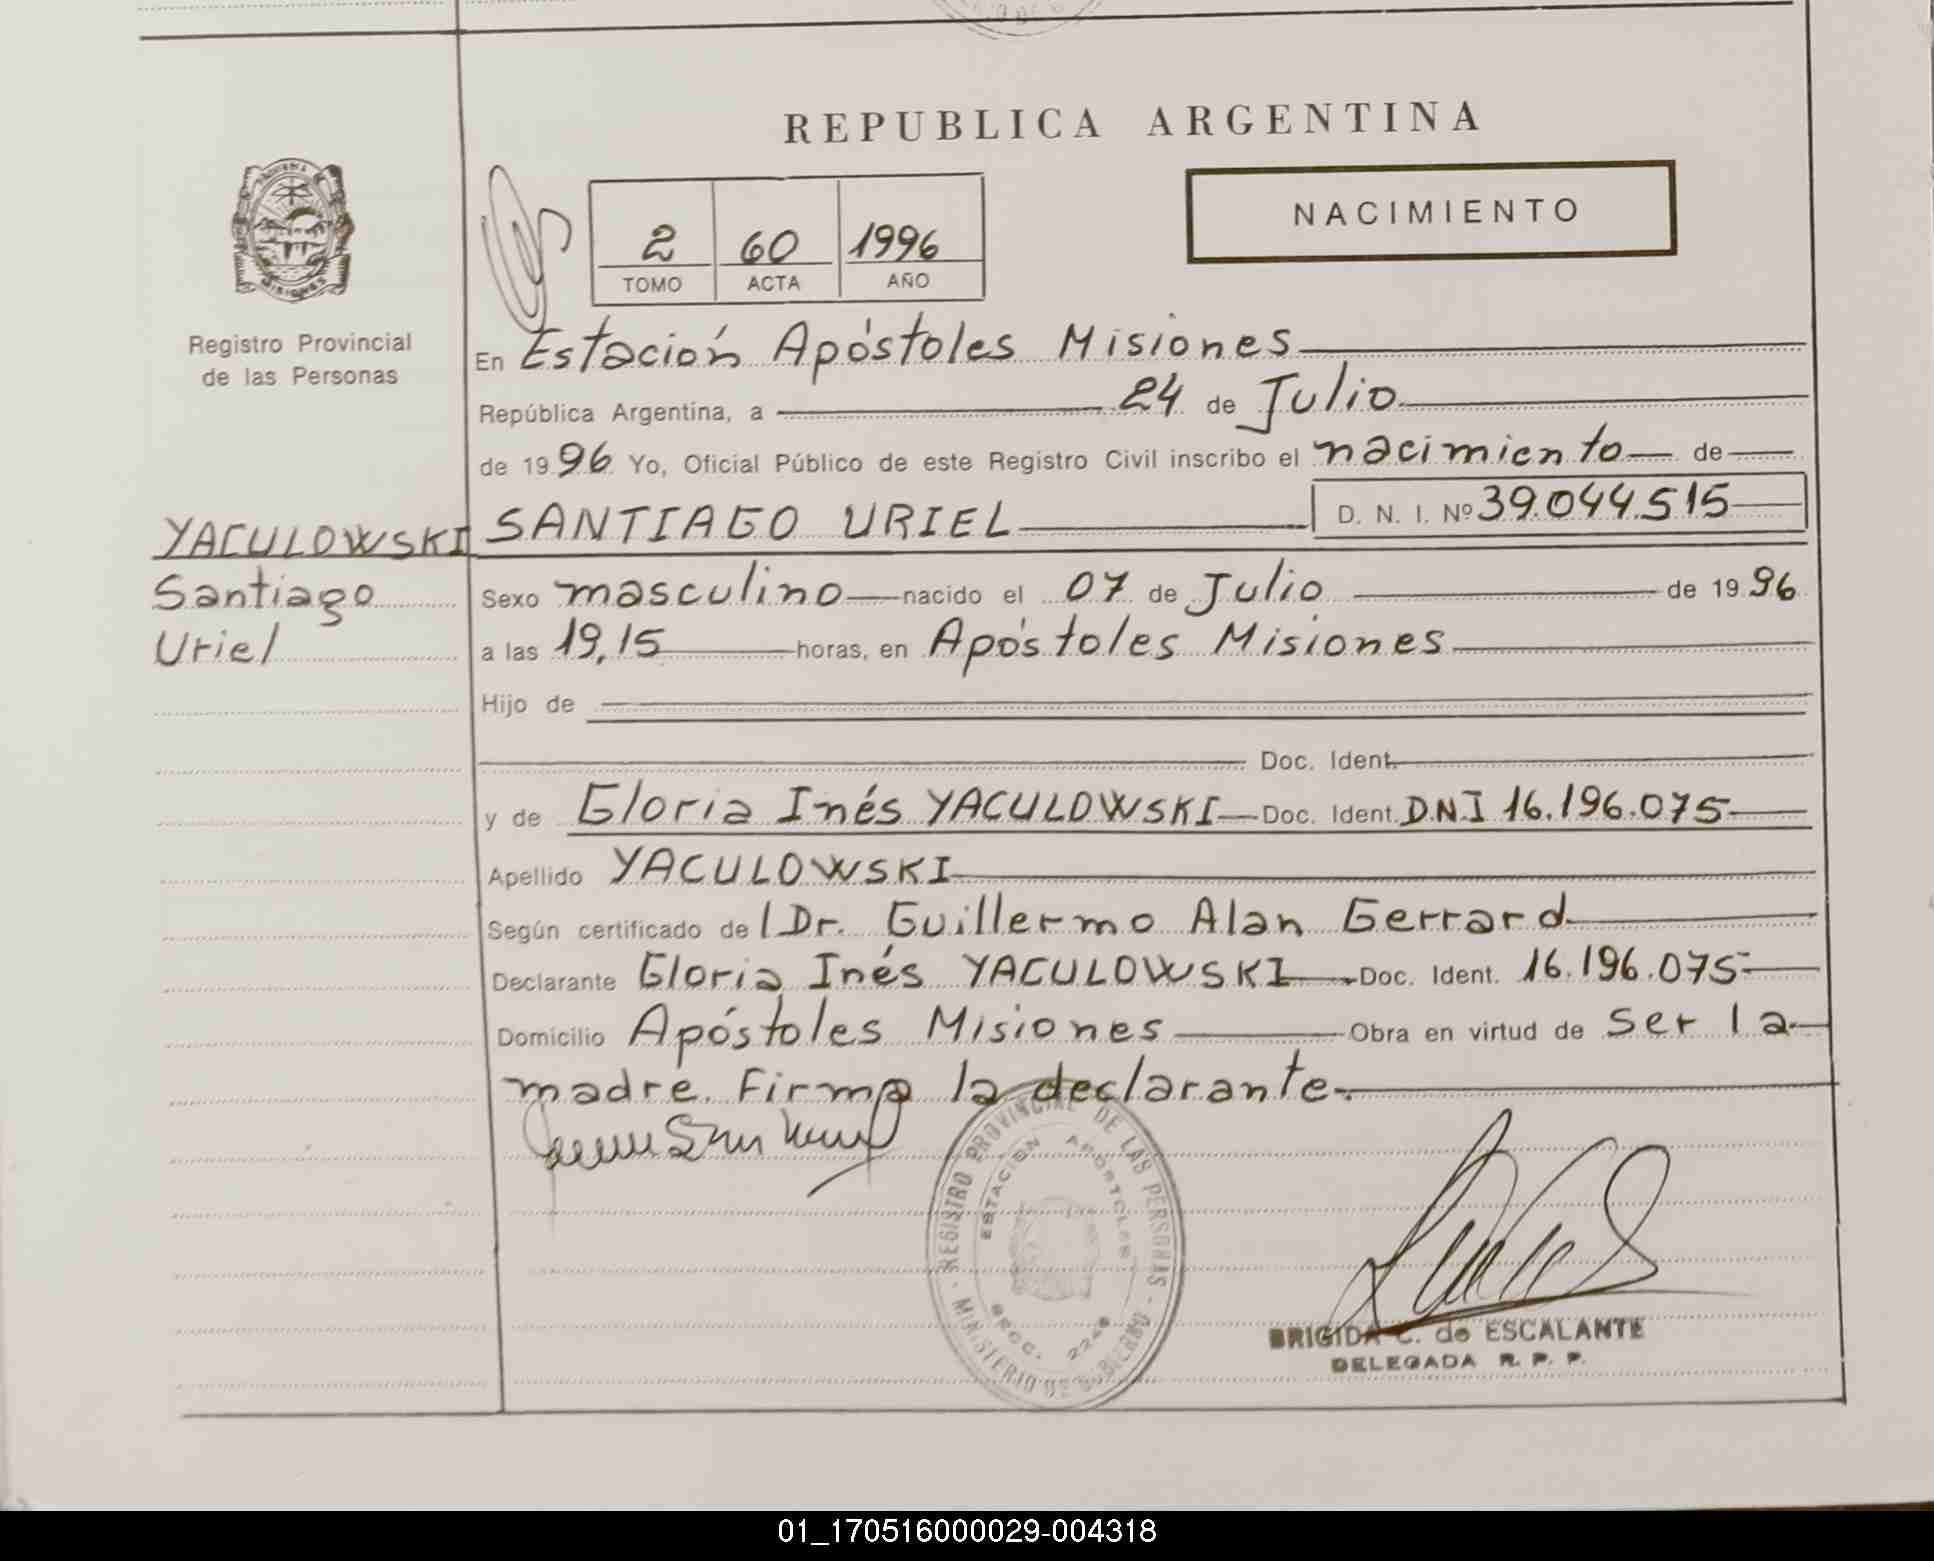 REPUBLICA ARGENTINA
PROVINCIA DE
MISIONES
NACIMIENTO
2 60 1996
TOMO ACTA AÑO
Registro Provincial
de las Personas
En Estación Apóstoles Misiones
República Argentina, a 24 de Julio
de 1996 Yo, Oficial Público de este Registro Civil inscribo el nacimiento de
YACULOWSKI SANTIAGO URIEL D. N. I. Nº 39.044.515
Santiago
Uriel
Sexo masculino nacido el 07 de Julio de 1996
a las 19,15 horas, en Apóstoles Misiones
Hijo de
Doc. Ident.
y de Gloria Inés YACULOWSKI Doc. Ident. D.N.I 16.196.075
Apellido YACULOWSKI
Según certificado de l Dr. Guillermo Alan Gerrard
Declarante Gloria Inés YACULOWSKI Doc. Ident. 16.196.075
Domicilio Apóstoles Misiones Obra en virtud de ser la
madre. Firma la declarante.
REGISTRO PROVINCIAL DE LAS PERSONAS
MINISTERIO DE GOBIERNO
ESTACION APOSTOLES
SECC. 2240
BRIGIDA C. de ESCALANTE
DELEGADA R. P. P.
01_170516000029-004318